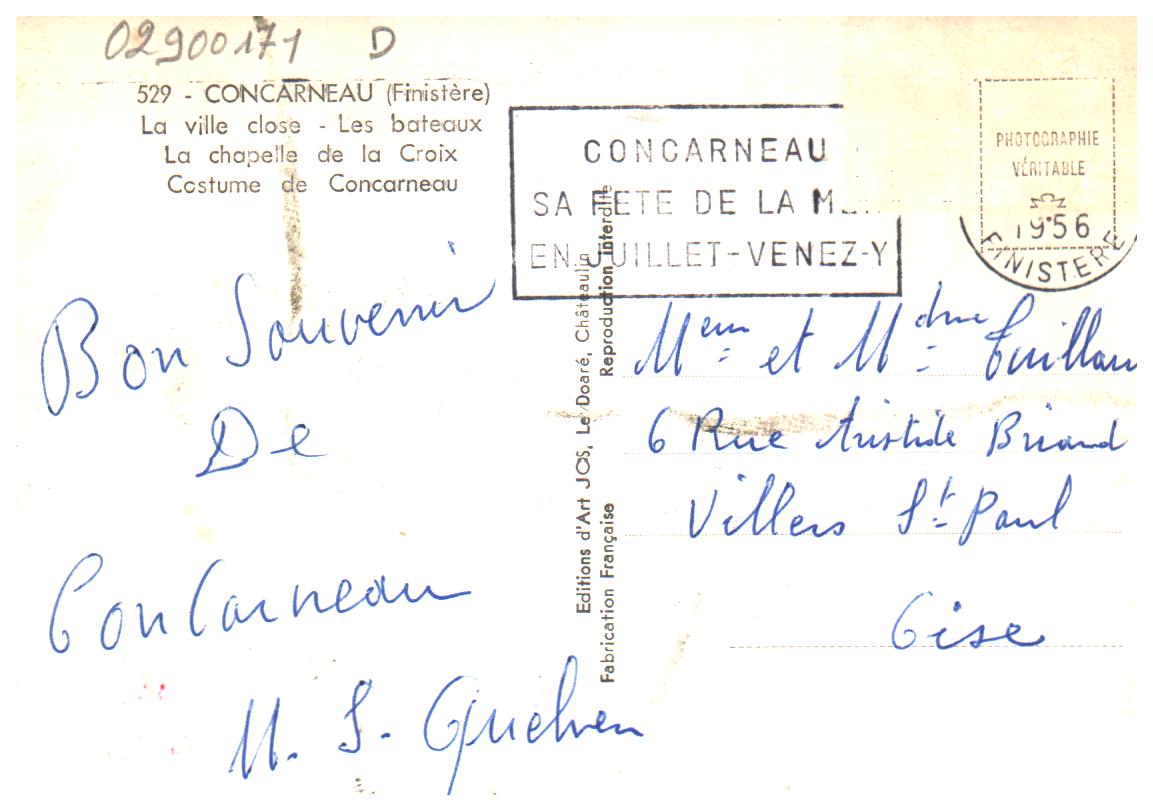 02900171 D
529 - CONCARNEAU (Finistère)
La ville close - Les bateaux
La chapelle de la Croix
Costume de Concarneau
CONCARNEAU
SA FETE DE LA
EN JUILLET-VENEZ-Y
PHOTOGRAPHIE
VÉRITABLE
1956
FINISTERE
Bon Souvenir
De
ConCarneau
Editions d'Art JOS, Le Doaré, Châteaulin
Fabrication Française Reproduction interdite
et
6 Rue Aristide Briand
Villers St Paul
Oise